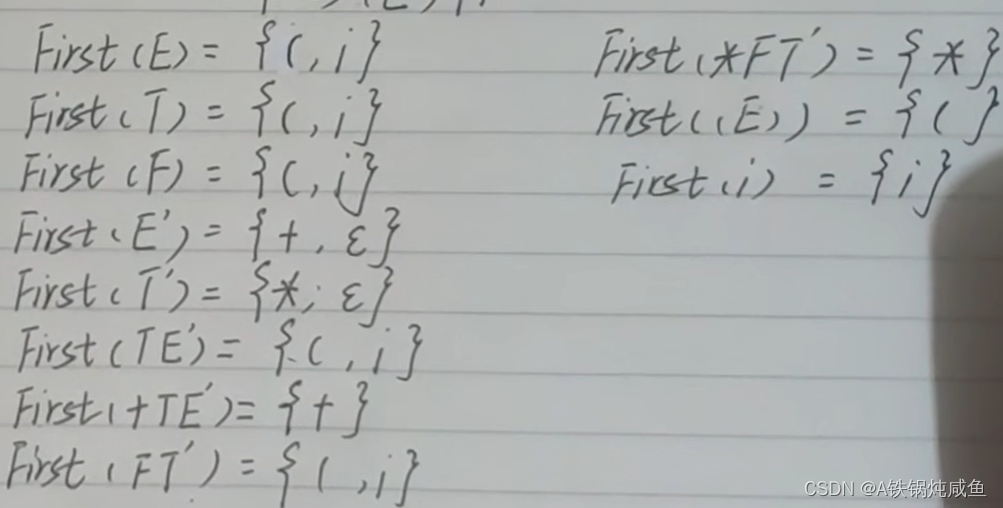 First(E) = {(, i}
First(T) = {(, i}
First(F) = {(, i}
First(E') = {+, ε}
First(T') = {*, ε}
First(TE') = {(, i}
First(+TE') = {+}
First(FT') = {(, i}
First(*FT') = {*}
First((E)) = {(}
First(i) = {i}
CSDN @A铁锅炖咸鱼